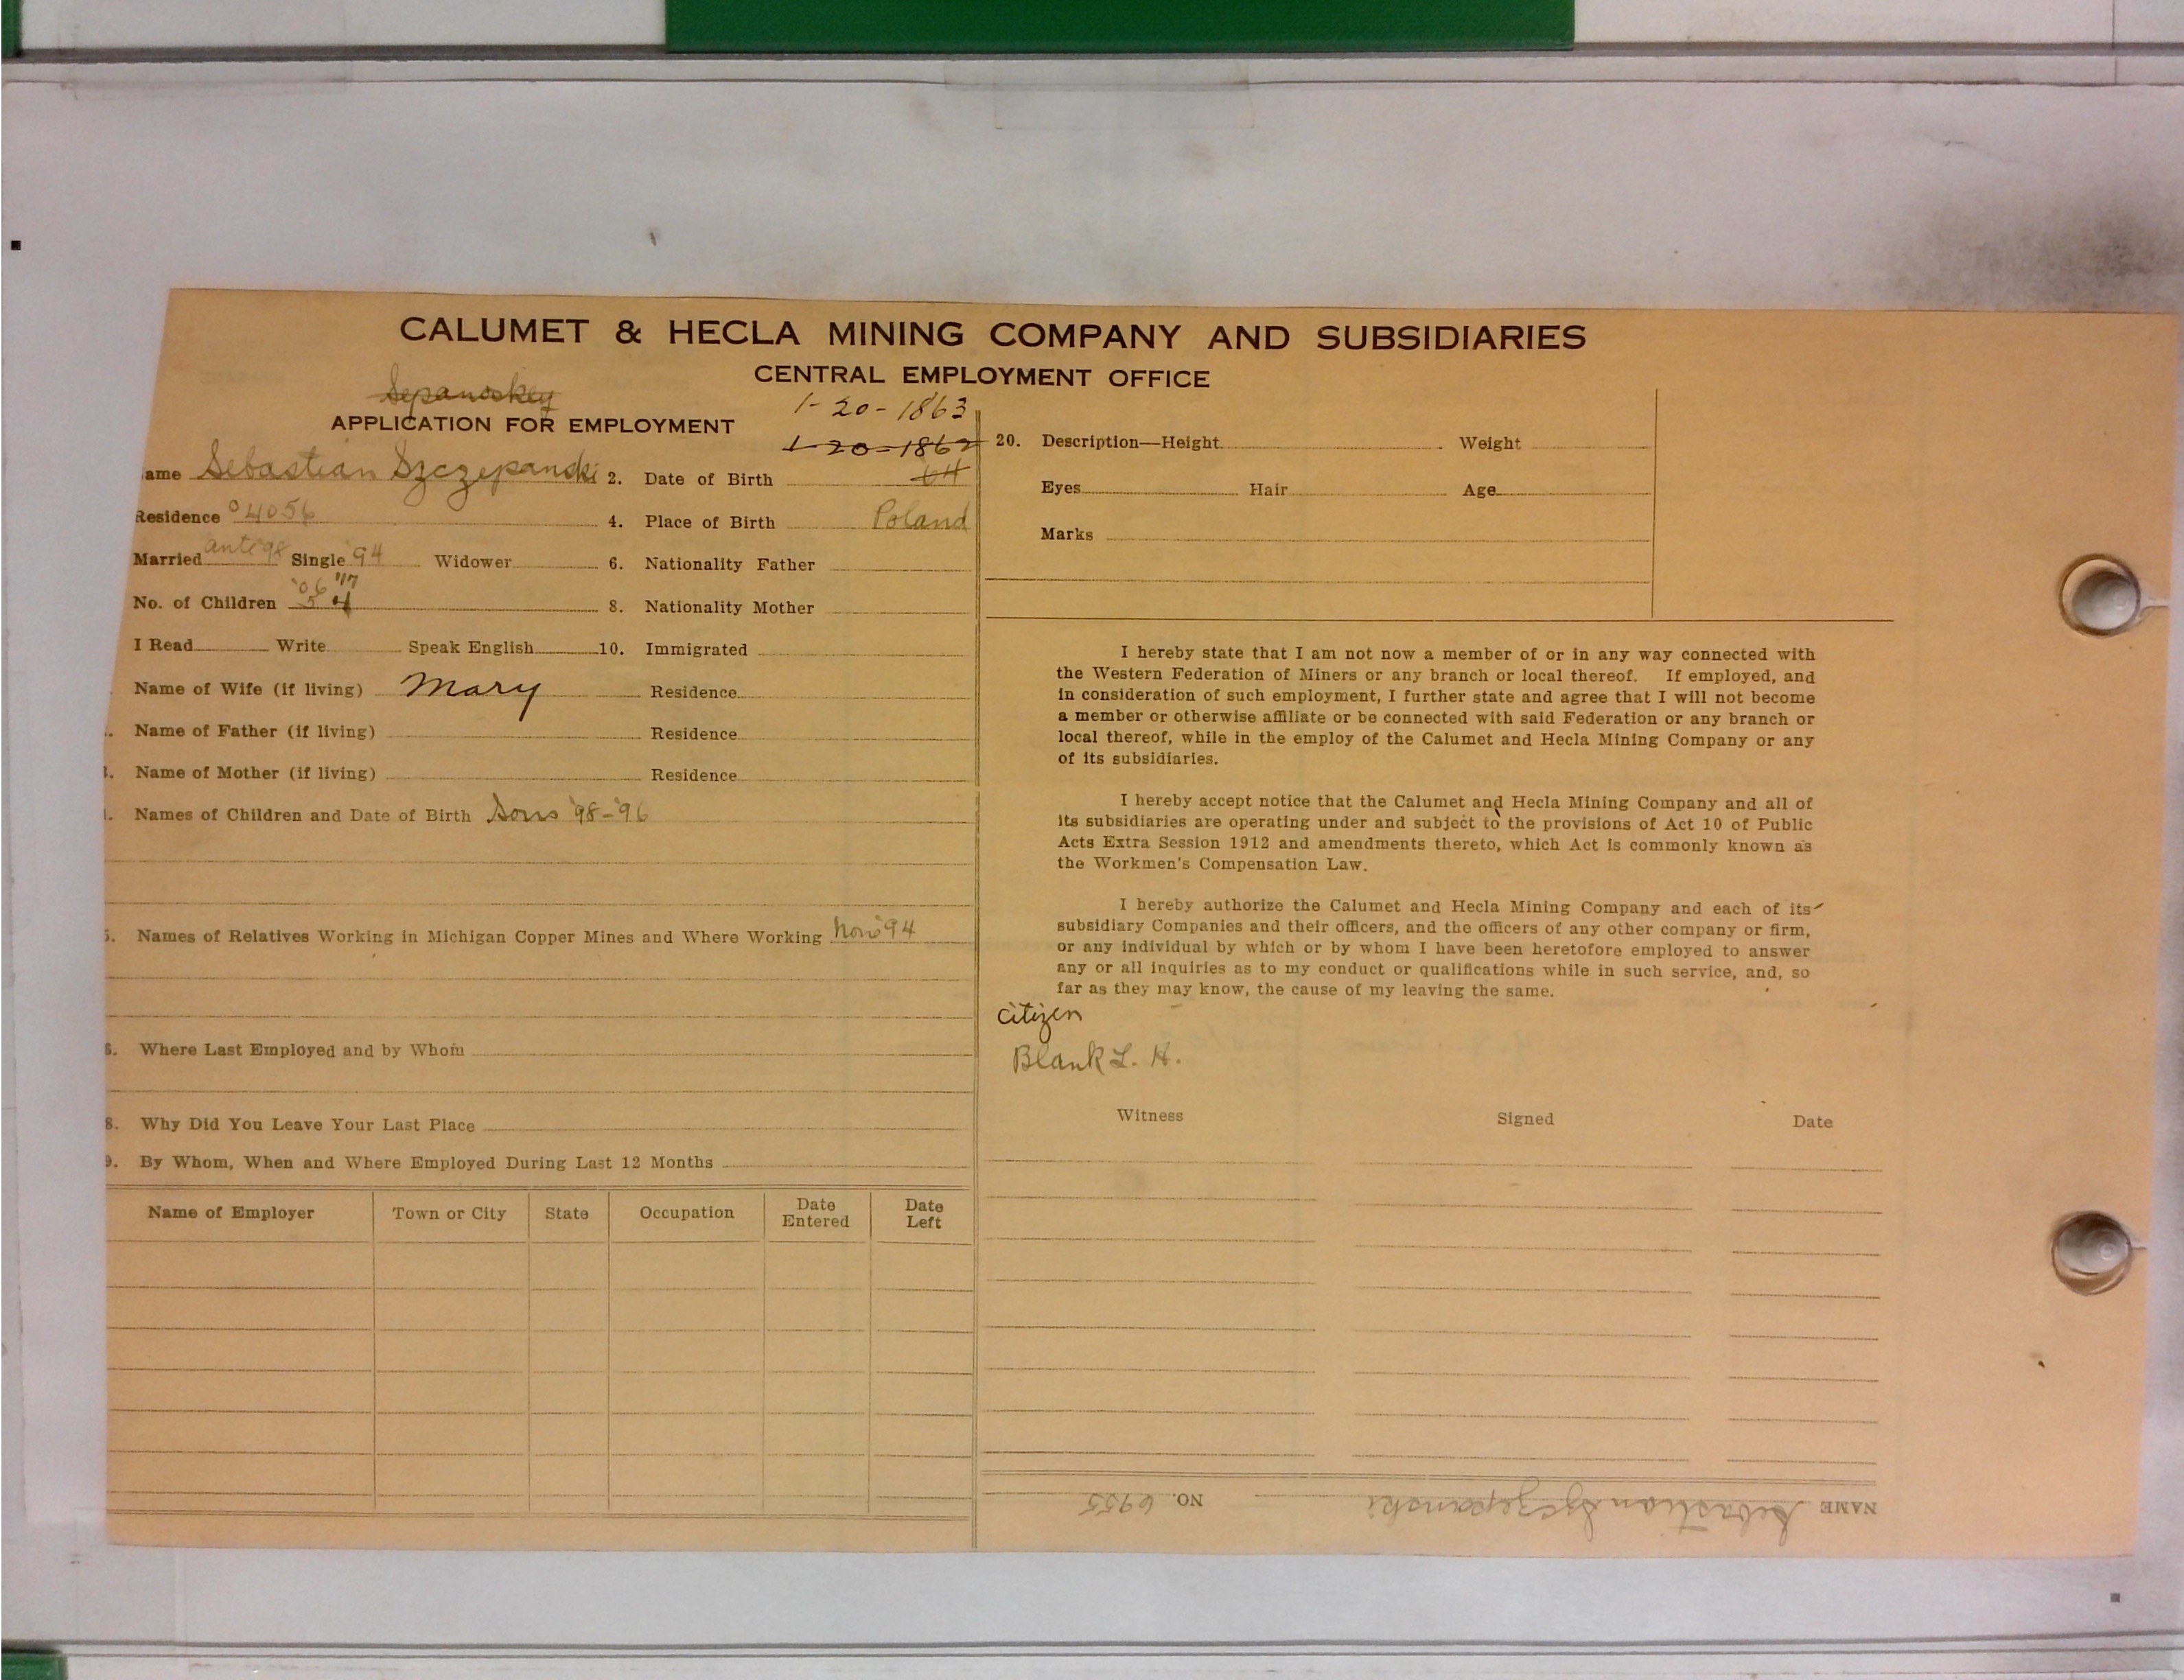 CALUMET & HECLA MINING COMPANY AND SUBSIDIARIES
CENTRAL EMPLOYMENT OFFICE
Sepanoskey
APPLICATION FOR EMPLOYMENT
1-20-1863
1-20-1862
64
ame Sebastian Szczepanski 2. Date of Birth
Residence 04056 4. Place of Birth Poland
Married ante 98 Single '94 Widower 6. Nationality Father
'06 '17
No. of Children 5 4 8. Nationality Mother
I Read Write Speak English 10. Immigrated
Name of Wife (if living) Mary Residence
Name of Father (if living) Residence
Name of Mother (if living) Residence
Names of Children and Date of Birth Sons '98-'96
5. Names of Relatives Working in Michigan Copper Mines and Where Working '94
6. Where Last Employed and by Whom
8. Why Did You Leave Your Last Place
9. By Whom, When and Where Employed During Last 12 Months
Name of Employer Town or City State Occupation Date Entered Date Left
20. Description—Height Weight
Eyes Hair Age
Marks
I hereby state that I am not now a member of or in any way connected with
the Western Federation of Miners or any branch or local thereof. If employed, and
in consideration of such employment, I further state and agree that I will not become
a member or otherwise affiliate or be connected with said Federation or any branch or
local thereof, while in the employ of the Calumet and Hecla Mining Company or any
of its subsidiaries.
I hereby accept notice that the Calumet and Hecla Mining Company and all of
its subsidiaries are operating under and subject to the provisions of Act 10 of Public
Acts Extra Session 1912 and amendments thereto, which Act is commonly known as
the Workmen's Compensation Law.
I hereby authorize the Calumet and Hecla Mining Company and each of its
subsidiary Companies and their officers, and the officers of any other company or firm,
or any individual by which or by whom I have been heretofore employed to answer
any or all inquiries as to my conduct or qualifications while in such service, and, so
far as they may know, the cause of my leaving the same.
citizen
Blank L. H.
Witness Signed Date
NAME Sebastian Szczepanski NO. 6955